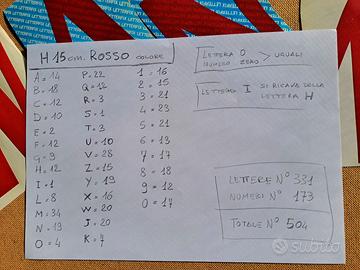 H 15 cm. ROSSO COLORE
A = 14
B = 18
C = 12
D = 10
E = 2
F = 12
G = 9
H = 12
I = 1
L = 8
M = 34
N = 13
O = 4
P = 22
Q = 12
R = 3
S = 1
T = 3
U = 10
V = 28
Z = 15
Y = 19
X = 16
W = 20
J = 20
K = 7
1 = 16
2 = 15
3 = 21
4 = 23
5 = 21
6 = 13
7 = 17
8 = 18
9 = 12
0 = 17
LETTERA O
NUMERO ZERO > UGUALI
LETTERA I SI RICAVA DELLA
LETTERA H
LETTERE N° 331
NUMERI N° 173
TOTALE N° 504
subito